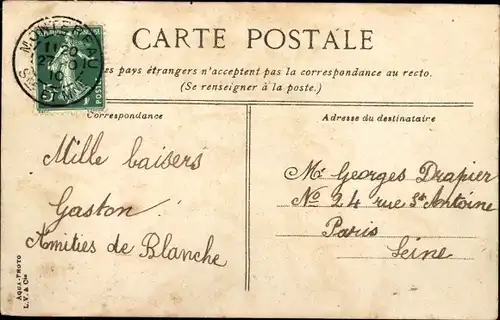 CARTE POSTALE
pays étrangers n'acceptent pas la correspondance au recto.
(Se renseigner à la poste.)
Correspondance
Adresse du destinataire
Mille baisers
Gaston
Amitiés de Blanche
Mr Georges Drapier
No 24 rue St Antoine
Paris
Seine
AQUA-PHOTO
L.V. & Cie